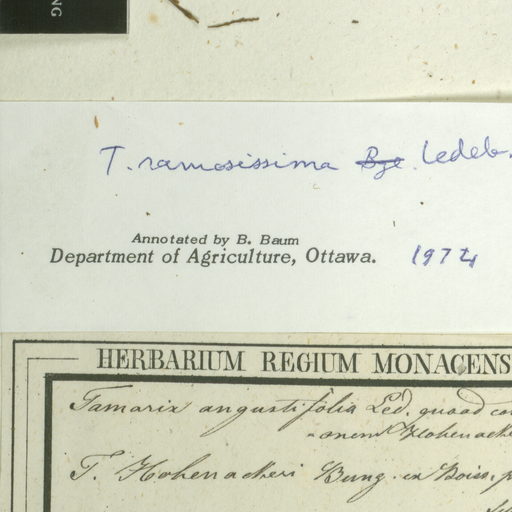 NG
T. ramosissima Bge. Ledeb.
Annotated by B. Baum
Department of Agriculture, Ottawa. 1974
HERBARIUM REGIUM MONACENS
Tamarix angustifolia Led. quoad
Hohenacke
T. Hohenackeri Bung. ex Boiss.